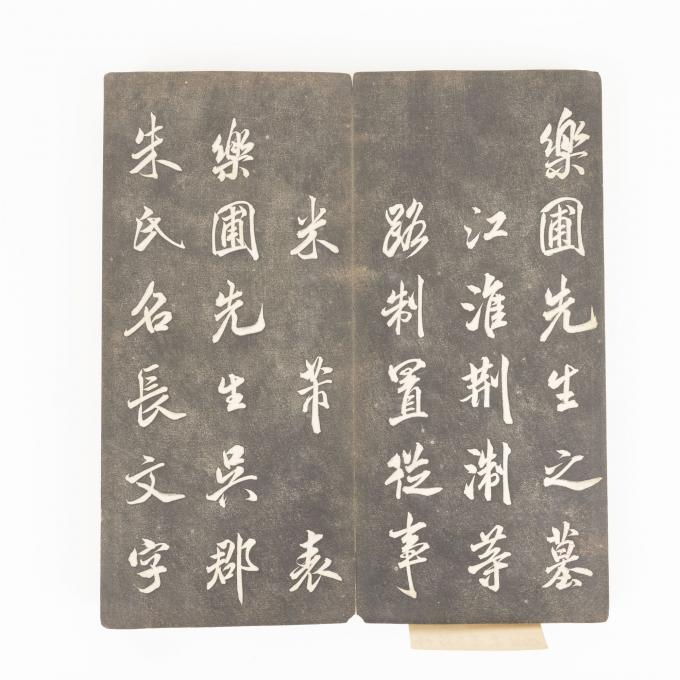 樂圃先生之墓
江淮荆淛等
路制置從事
米芾表
樂圃先生吳郡
朱氏名長文字